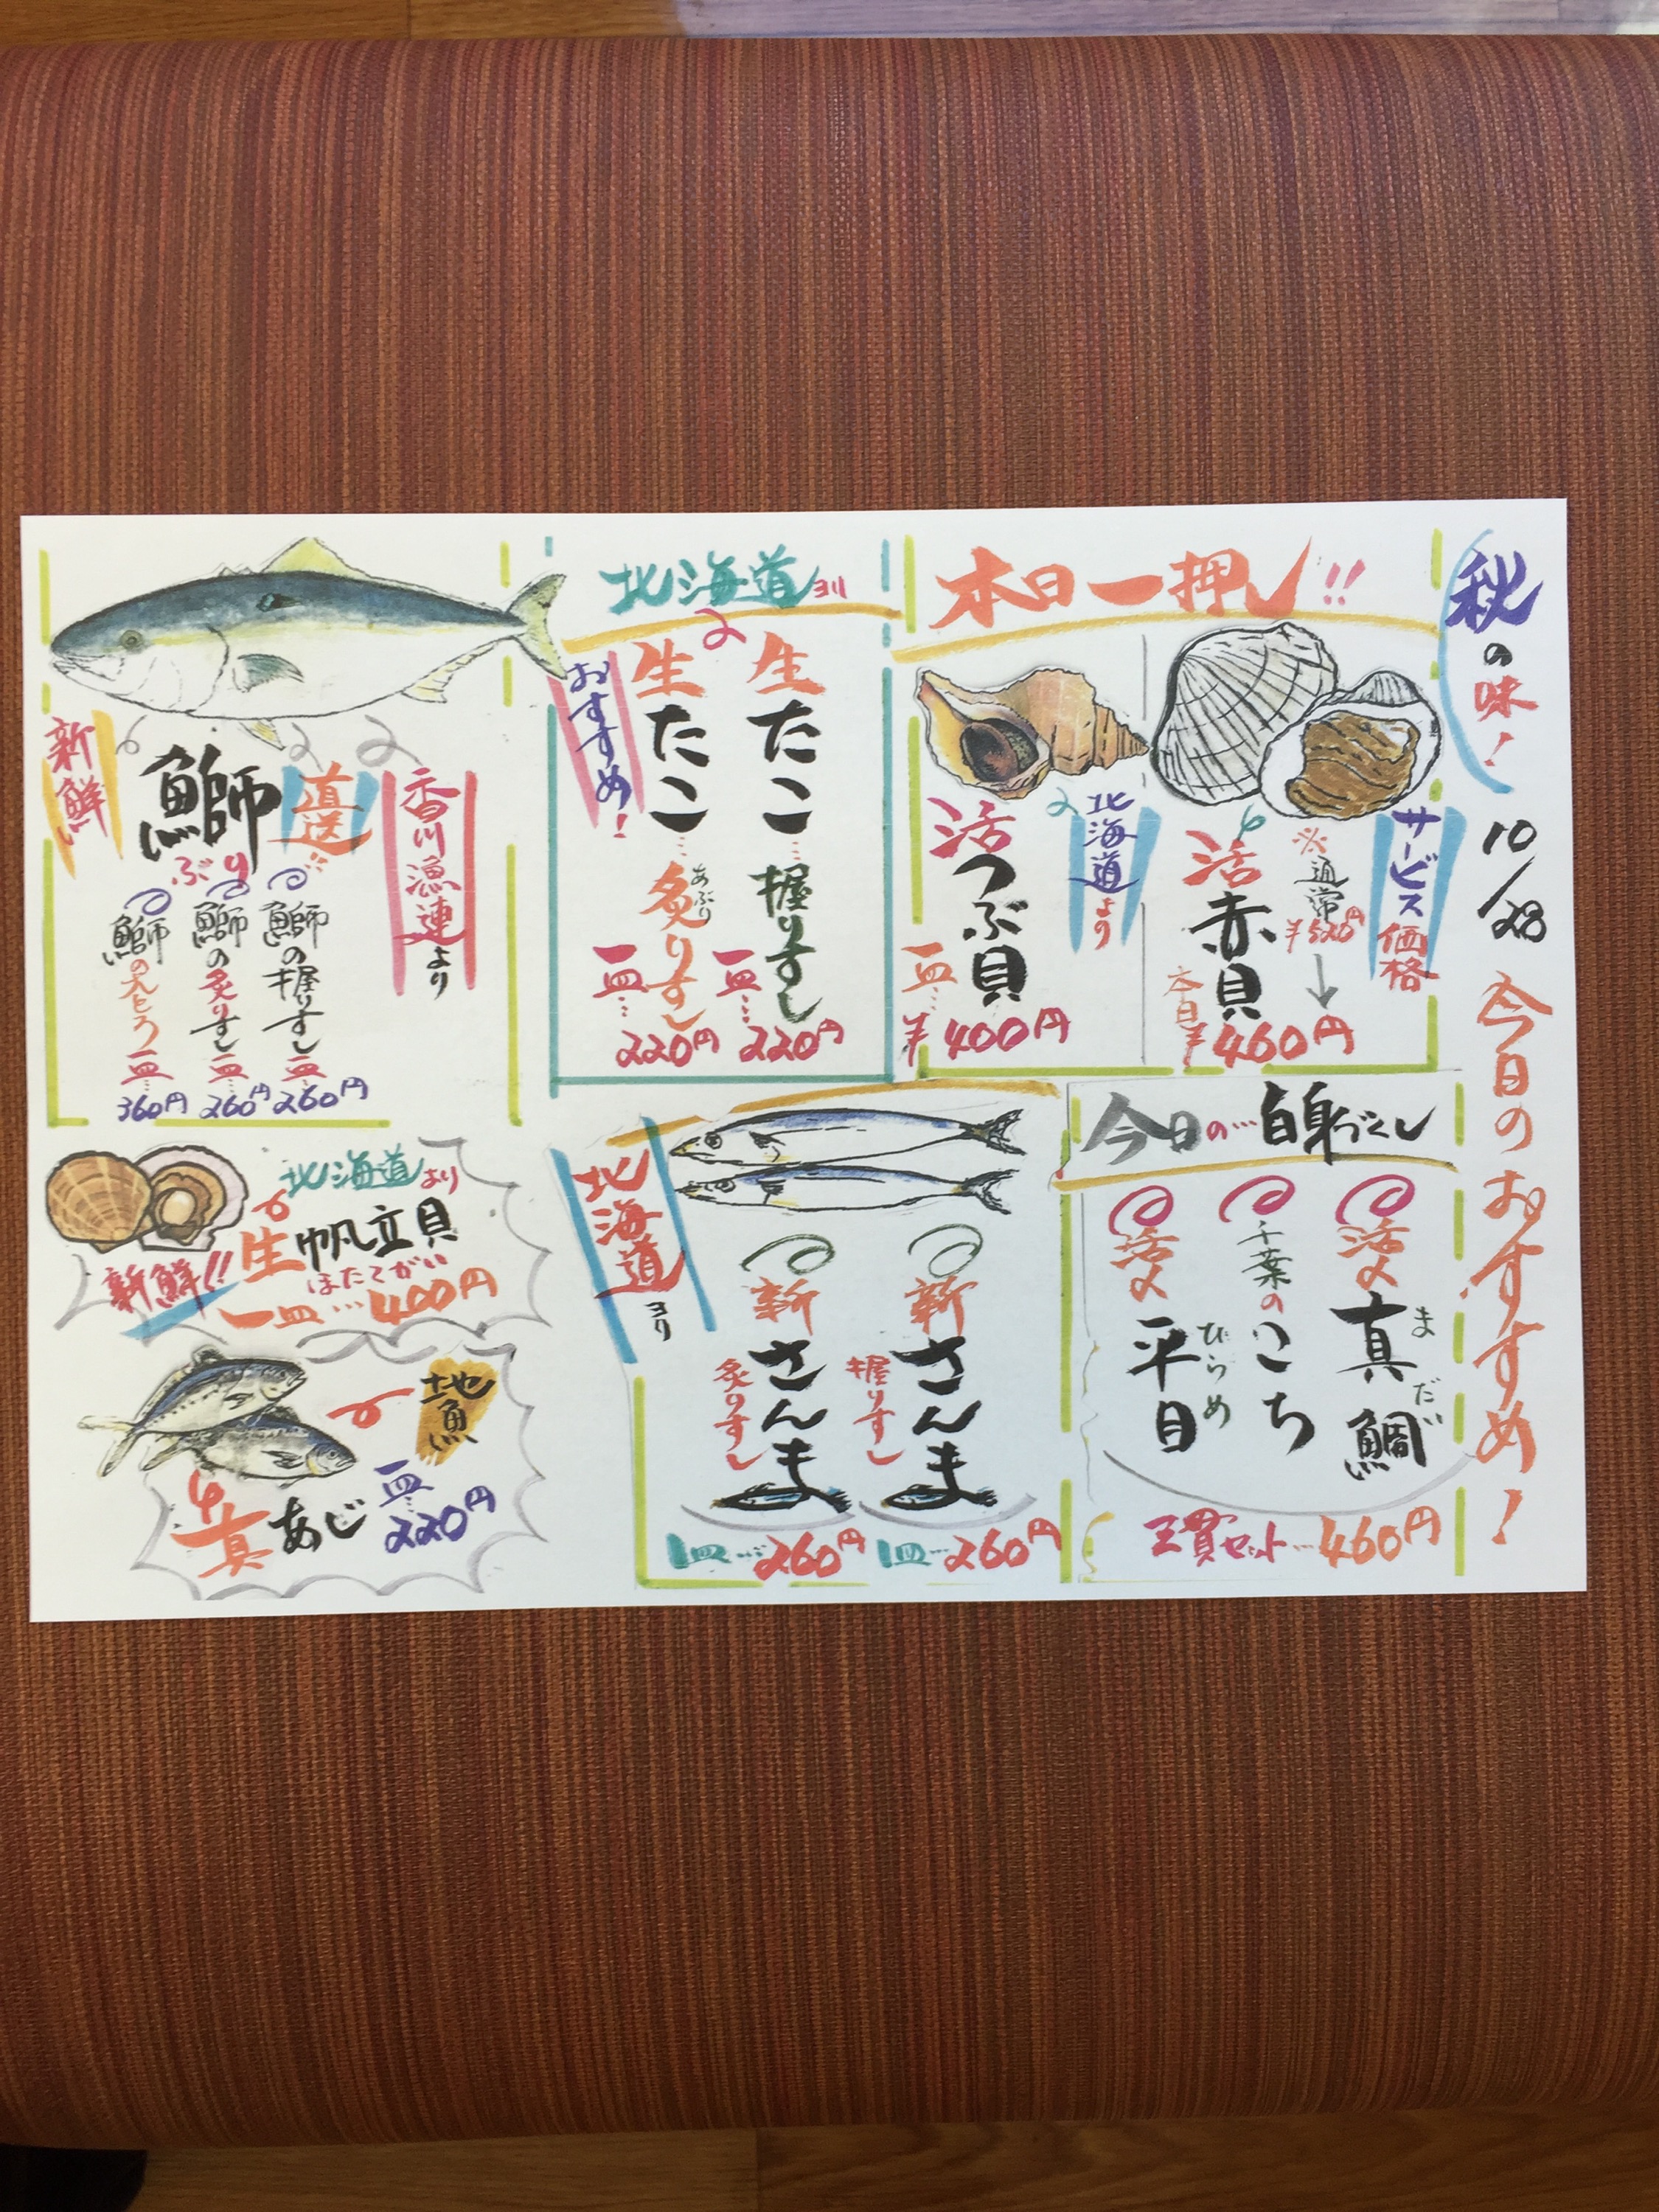 秋の味！
10/28 今日のおすすめ！
本日一押し!!
サービス価格
※通常
¥520円
活赤貝
本日
¥460円
北海道より
活つぶ貝
一皿…
¥400円
北海道ヨリ
生たこ…握りすし
一皿…
220円
生たこ…炙りすし
あぶり
一皿…
220円
おすすめ！
香川漁連より
直送
鰤
ぶり
新鮮
鰤の握りすし
一皿…
260円
鰤の炙りすし
一皿…
260円
鰤の大とろ
一皿…
360円
今日の…白身づくし
活〆真鯛
まだい
千葉のこち
活〆平目
ひらめ
三貫セット…460円
北海道ヨリ
新さんま
握りすし
1皿…260円
新さんま
炙りすし
1皿…260円
北海道より
生帆立貝
ほたてがい
新鮮!!
一皿…400円
地魚
真あじ
一皿…
220円